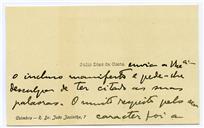 Julio Dias da Costa envia a V. Ex.ª
o incluso manifesto e pede-lhe
desculpa de ter citado as suas
palavras. O muito respeito pelo seu
Coimbra — R. Dr. João Jacintho, 7 caracter foi a